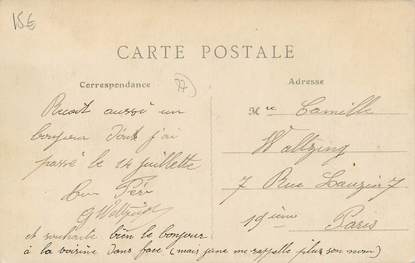 15€
CARTE POSTALE
Correspondance
77
Adresse
Reçoit aussi un
bonjour dont j'ai
passé le 14 juillette
Ton Père
G Waltzing
et souhaite bien le bonjour
à la voisine dans face (mais gane me rappelle plus son nom)
Mlle Camille
Waltzing
7 Rue Lauzin 7
19ième
Paris